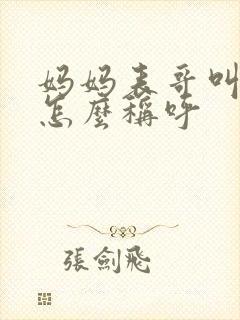 妈妈表哥叫
怎麼稱呼
張劍飛